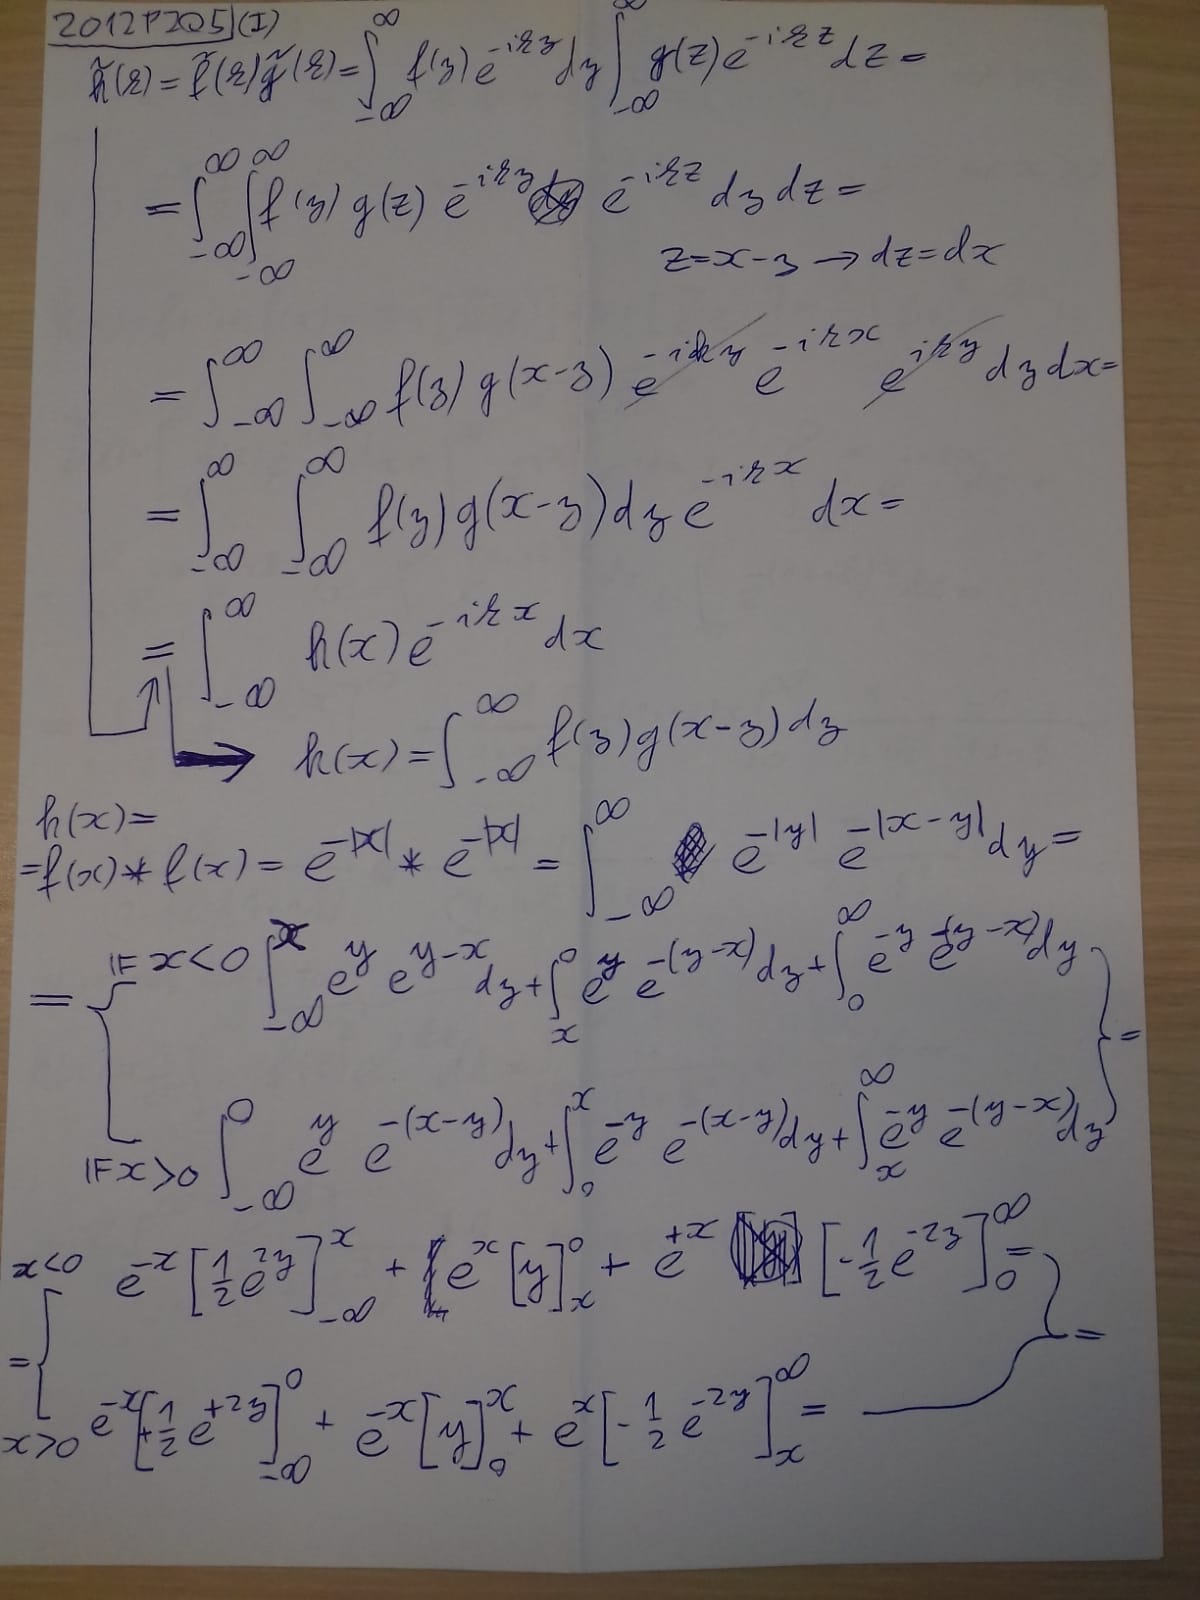 2012P2Q5 (I)
h̃(k) = f̃(k) g̃(k) = ∫_{-∞}^{∞} f(y) e^{-iky} dy ∫_{-∞}^{∞} g(z) e^{-ikz} dz =
= ∫_{-∞}^{∞} ∫_{-∞}^{∞} f(y) g(z) e^{-iky} e^{-ikz} dy dz =
z = x-y → dz = dx
= ∫_{-∞}^{∞} ∫_{-∞}^{∞} f(y) g(x-y) e^{-iky} e^{-ikx} e^{iky} dy dx =
= ∫_{-∞}^{∞} ∫_{-∞}^{∞} f(y) g(x-y) dy e^{-ikx} dx =
= ∫_{-∞}^{∞} h(x) e^{-ikx} dx
→ h(x) = ∫_{-∞}^{∞} f(y) g(x-y) dy
h(x) =
= f(x) * f(x) = e^{-|x|} * e^{-|x|} = ∫_{-∞}^{∞} e^{-|y|} e^{-|x-y|} dy =
= { IF x<0 ∫_{-∞}^{x} e^{y} e^{y-x} dy + ∫_{x}^{0} e^{y} e^{-(y-x)} dy + ∫_{0}^{∞} e^{-y} e^{-(y-x)} dy } =
IF x>0 ∫_{-∞}^{0} e^{y} e^{-(x-y)} dy + ∫_{0}^{x} e^{-y} e^{-(x-y)} dy + ∫_{x}^{∞} e^{-y} e^{-(y-x)} dy
x<0 e^{-x} [1/2 e^{2y}]_{-∞}^{x} + e^{x} [y]_{x}^{0} + e^{+x} [-1/2 e^{-2y}]_{0}^{∞} =
= { } =
x>0 e^{-x} [+1/2 e^{+2y}]_{-∞}^{0} + e^{-x} [y]_{0}^{x} + e^{x} [-1/2 e^{-2y}]_{x}^{∞} =